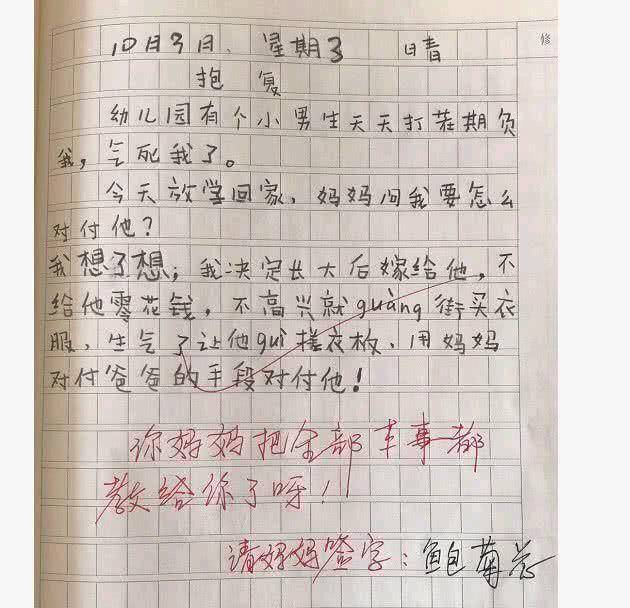 修
10月3日、星期3 晴
抱复
幼儿园有个小男生天天打茬期负
我,气死我了。
今天放学回家,妈妈问我要怎么
对付他?
我想了想;我决定长大后嫁给他,不
给他零花钱,不高兴就guàng街买衣
服、生气了让他guì搓衣板、用妈妈
对付爸爸的手段对付他!
你妈妈把全部本事都
教给你了呀!!
请妈妈签字:鲍菊